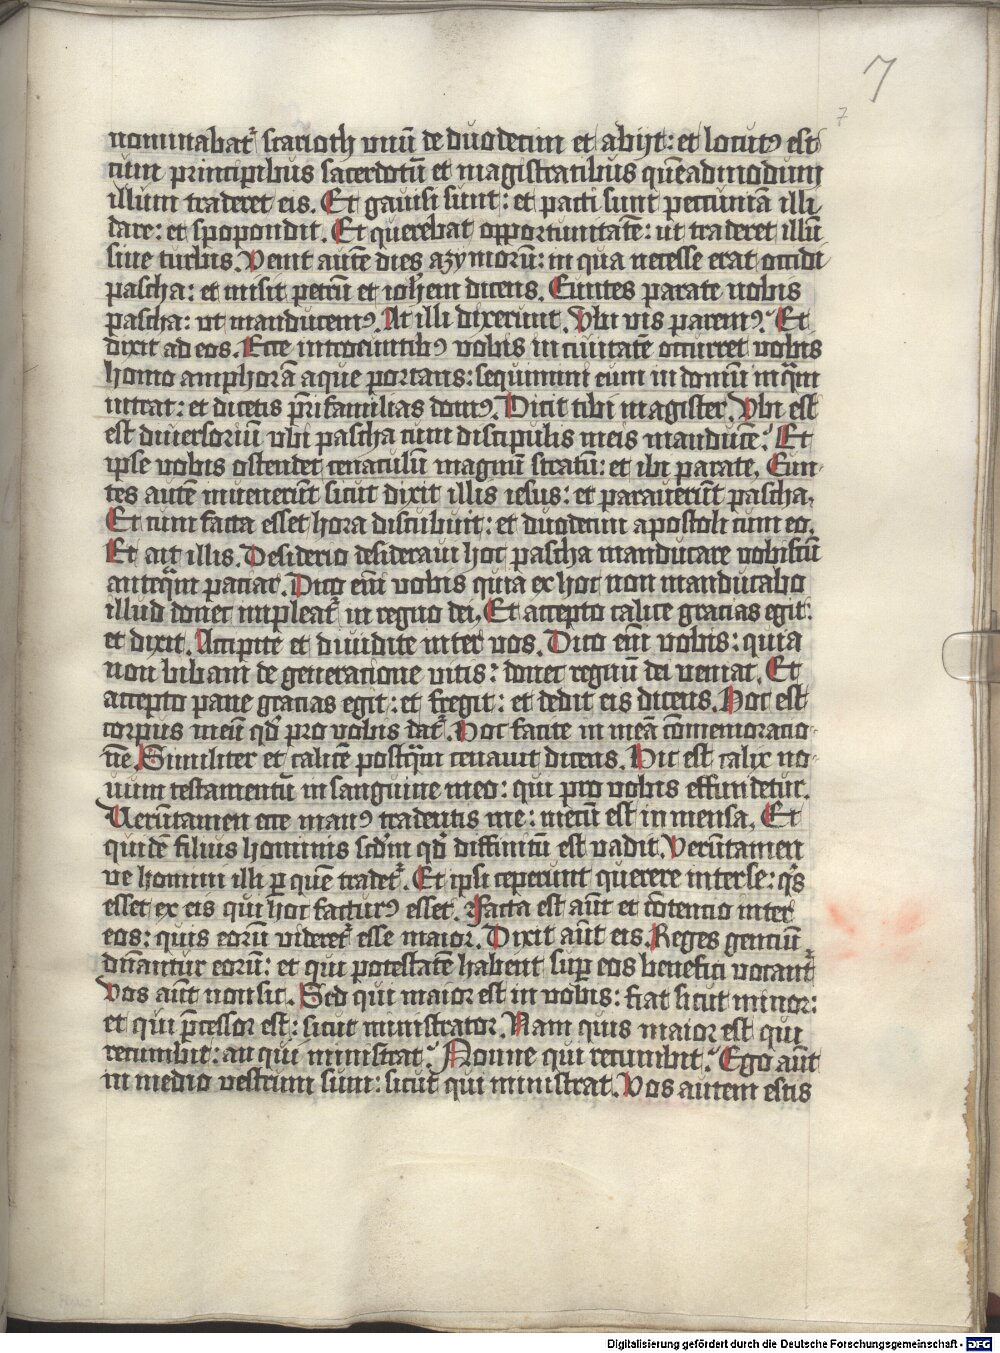 7
7
nominabat᷑ scarioth vnū de duodecim et abijt: et locutꝰ est
cum principibus sacerdotū et magistratibus quēadmodum
illum traderet eis. Et gauisi sunt: et pacti sunt pecuniā illi
dare: et spopondit. Et querebat opportunitatē: ut traderet illū
sine turbis. Venit autē dies azymorū: in qua necesse erat occidi
pascha: et misit petrū et ioh̄em dicens. Euntes parate nobis
pascha: ut manducemꝰ. At illi dixerunt. Vbi vis paremꝰ? Et
dixit ad eos. Ecce introeuntibꝰ vobis in ciuitatē occurret vobis
homo amphorā aque portans: sequimini eum in domū in q̄m
intrat: et dicetis p̄rifamilias domꝰ. Dicit tibi magister. Vbi est
est diuersoriū vbi pascha cum discipulis meis manducē? Et
ipse vobis ostendet cenaculū magnū stratū: et ibi parate. Eun-
tes autē inuenerūt sicut dixit illis iesus: et parauerūt pascha.
Et cum facta esset hora discubuit: et duodecim apostoli cum eo.
Et ait illis. Desiderio desideraui hoc pascha manducare vobiscū
anteq̄m patiar. Dico em̄ vobis quia ex hoc non manducabo
illud donec impleat᷑ in regno dei. Et accepto calice gracias egit:
et dixit. Accipite et diuidite inter vos. Dico em̄ vobis: quia
non bibam de generatione vitis: donec regnū dei veniat. Et
accepto pane gracias egit: et fregit: et dedit eis dicens. Hoc est
corpus meū qd̄ pro vobis dat᷑. Hoc facite in meā cōmemoracio-
nē. Similiter et calicē postq̄m cenauit dicens. Hic est calix no-
uum testamentū in sanguine meo: qui pro vobis effundetur.
Verūtamen ecce manꝰ tradentis me: mecū est in mensa. Et
quidē filius hominis scd̄m qd̄ diffinitū est vadit. Verūtamen
ve homini illi ꝑ quē tradet᷑. Et ipsi ceperunt querere inter se: q̄s
esset ex eis qui hoc facturꝰ esset. Facta est aūt et cōtencio inter
eos: quis eorū videret᷑ esse maior. Dixit aūt eis. Reges genciū
dn̄antur eorū: et qui potestatē habent suꝑ eos benefici vocant᷑
Vos aūt non sic. Sed qui maior est in vobis: fiat sicut minor:
et qui p̄cessor est: sicut ministrator. Nam quis maior est qui
recumbit: an qui ministrat? Nonne qui recumbit? Ego aūt
in medio vestrum sum: sicut qui ministrat. Vos autem estis
Digitalisierung gefördert durch die Deutsche Forschungsgemeinschaft - DFG